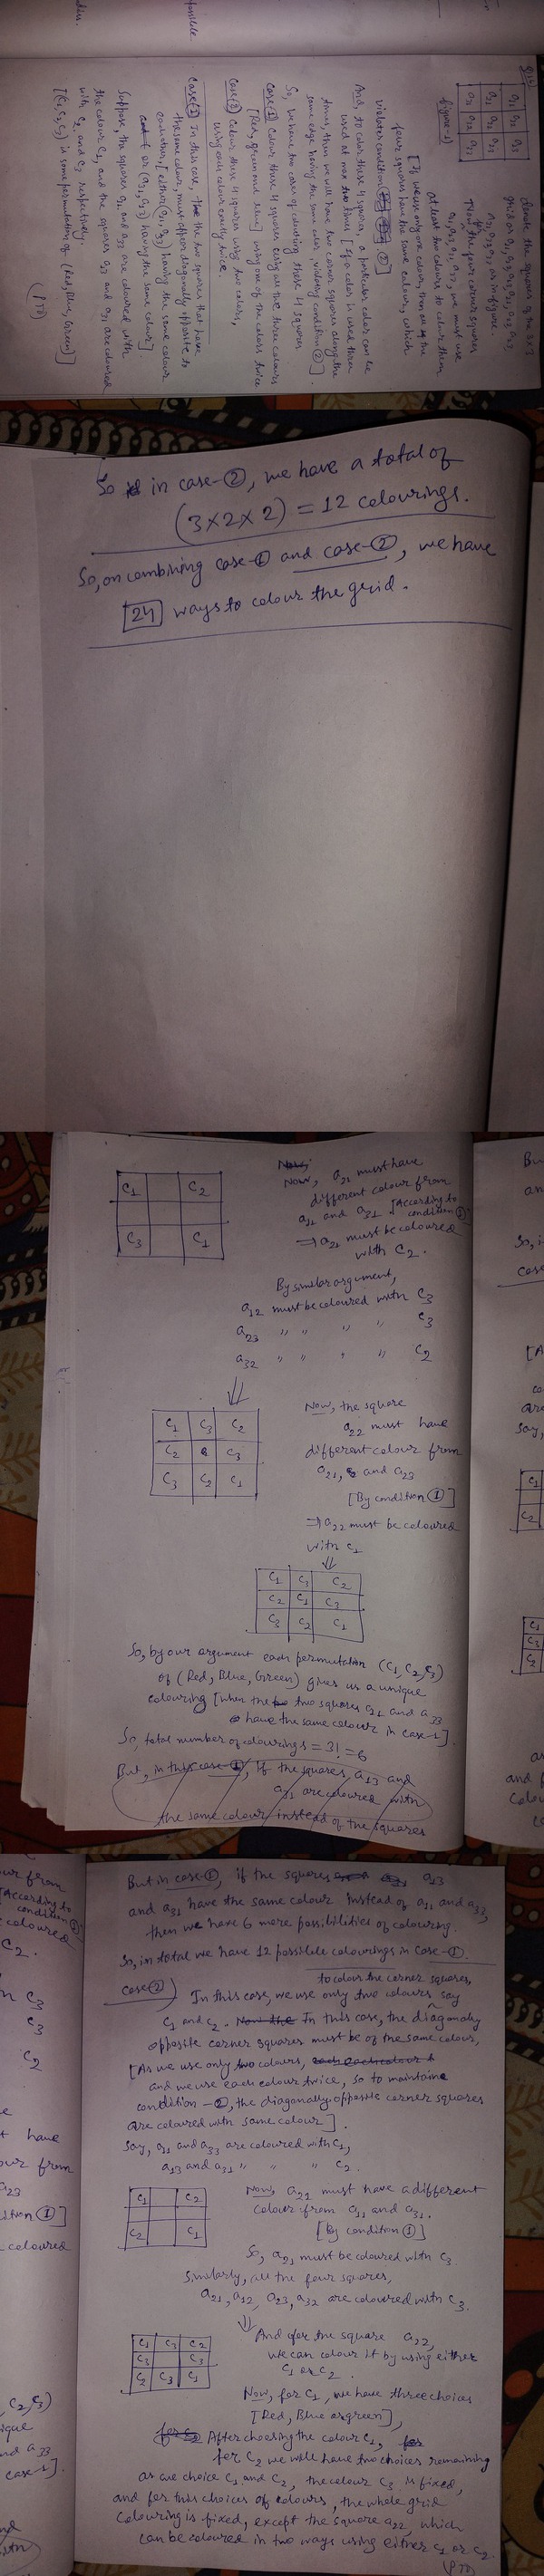 a11 a12 a13
a21 a22 a23
a31 a32 a33
figure-1
denote the squares of the 3×3
grid as a11, a12, a13, a21, a22, a23
a31, a32, a33 as in figure.
Now, the four corner squares
a11, a13, a31, a33, we must use
at least two colours to colour them
[If we use only one colour, then all the
four squares have the same colour, which
violates condition ②]
And, to color these 4 squares, a particular color can be
used at max two times [If a color is used three
times, then we will have two corner squares along the
same edge having the same color, violating condition ②].
So, we have two cases of colouring these 4 squares
Case① Colour these 4 squares using all the three colours
[Red, green and blue] using one of the colors twice
Case② Colour these 4 squares using two colors,
using each colour exactly twice.
Case① In this case, the two squares that have
the same colour, must appear diagonally opposite to
each other, [either (a11, a33) having the same colour
or (a31, a13) having the same colour]
Suppose, the squares a11 and a33 are coloured with
the colour C1, and the squares a13 and a31 are coloured
with C2 and C3 respectively.
[(C1, C2, C3) is some permutation of (Red, Blue, Green)]
(PTO)
So in case-②, we have a total of
(3×2×2) = 12 colourings.
So, on combining case-① and case-②, we have
24 ways to colour the grid.
Now, a21 must have
different colour from
a11 and a31. [According to
condition ①]
⇒ a21 must be coloured
with C2.
C1 C2
C3 C1
By similar argument,
a12 must be coloured with C3
a23 " " " " C3
a32 " " " " C2
⇓
C1 C3 C2
C2 C3
C3 C2 C1
Now, the square
a22 must have
different colour from
a21, and a23
[By condition ①]
⇒ a22 must be coloured
with C1
⇓
C1 C3 C2
C2 C1 C3
C3 C2 C1
So, by our argument each permutation (C1, C2, C3)
of (Red, Blue, Green) gives us a unique
colouring [when the two squares a11 and a33
have the same colour in case-1].
So, total number of colourings = 3! = 6
But, in this case-①, if the squares, a13 and
a31 are coloured with
the same colour instead of the squares
But in case-①, if the squares a13
and a31 have the same colour instead of a11 and a33,
then we have 6 more possibilities of colouring.
So, in total we have 12 possible colourings in case-①.
Case② to colour the corner squares,
In this case, we use only two colours say
C1 and C2. In this case, the diagonaly
opposite corner squares must be of the same colour,
[As we use only two colours,
and we use each colour twice, so to maintaine
condition-②, the diagonally opposite corner squares
are coloured with same colour].
Say, a11 and a33 are coloured with C1,
a13 and a31 " " " C2.
C1 C2
C2 C1
Now, a21 must have a different
colour from a11 and a31.
[By condition ①]
So, a21 must be coloured with C3
Similarly, all the four squares,
a21, a12, a23, a32 are coloured with C3.
⇓
C1 C3 C2
C3 C3
C2 C3 C1
And for the square a22,
we can colour it by using either
C1 or C2.
Now, for C1, we have three choices
[Red, Blue or green],
After choosing the colour C1,
for C2 we will have two choices remaining
as we choice C1 and C2, the colour C3 is fixed,
and for this choices of colours, the whole grid
colouring is fixed, except the square a22, which
can be coloured in two ways using either C1 or C2.
(PTO)